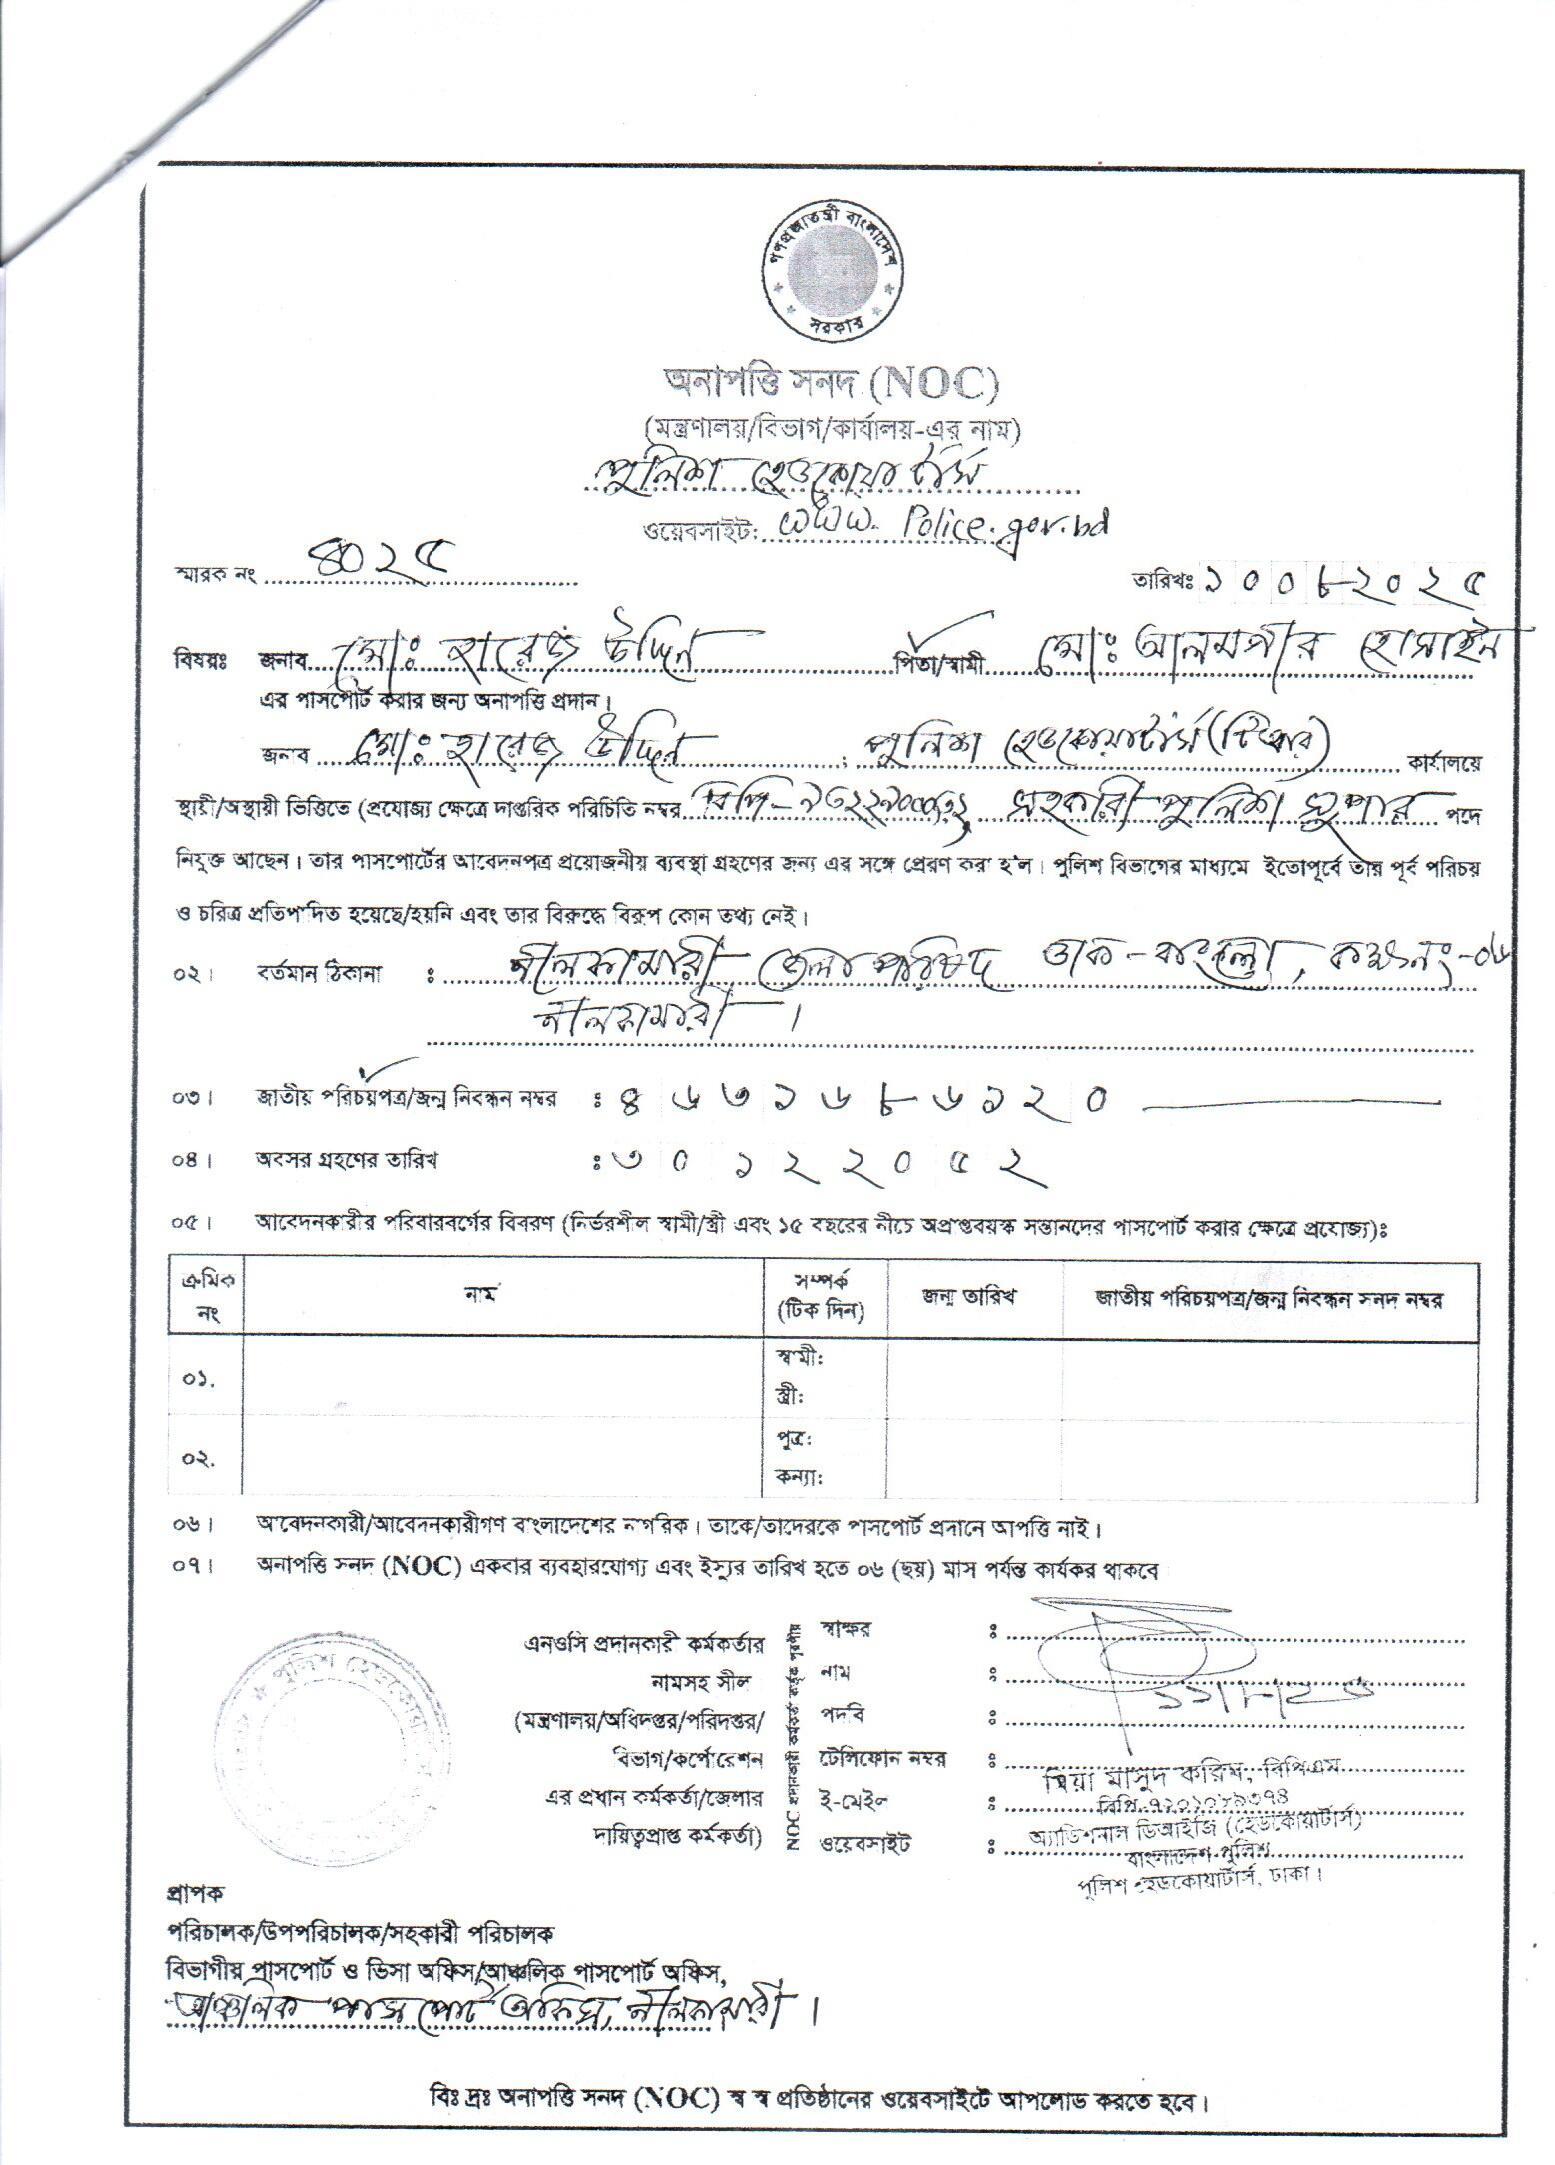 গণপ্রজাতন্ত্রী বাংলাদেশ
সরকার
অনাপত্তি সনদ (NOC)
(মন্ত্রণালয়/বিভাগ/কার্যালয়-এর নাম)
পুলিশ হেডকোয়ার্টার্স
ওয়েবসাইট: www. Police.gov.bd
স্মারক নং ৪০২৫ তারিখঃ ১০০৮২০২৫
বিষয়ঃ জনাব মোঃ হারেজ উদ্দিন পিতা/স্বামী মোঃ আলমগীর হোসাইন
এর পাসপোর্ট করার জন্য অনাপত্তি প্রদান।
জনাব মোঃ হারেজ উদ্দিন ; পুলিশ হেডকোয়ার্টার্স (টিআর) কার্যালয়ে
স্থায়ী/অস্থায়ী ভিত্তিতে (প্রযোজ্য ক্ষেত্রে দাপ্তরিক পরিচিতি নম্বর বিপি- সহকারী পুলিশ সুপার পদে
নিযুক্ত আছেন। তার পাসপোর্টের আবেদনপত্র প্রয়োজনীয় ব্যবস্থা গ্রহণের জন্য এর সঙ্গে প্রেরণ করা হ'ল। পুলিশ বিভাগের মাধ্যমে ইতোপূর্বে তার পূর্ব পরিচয়
ও চরিত্র প্রতিপাদিত হয়েছে/হয়নি এবং তার বিরুদ্ধে বিরূপ কোন তথ্য নেই।
০২। বর্তমান ঠিকানা : নীলফামারী জেলা পরিষদ ডাক-বাংলো, কক্ষনং-০৬
নীলফামারী।
০৩। জাতীয় পরিচয়পত্র/জন্ম নিবন্ধন নম্বর : ৪৬৩১৬৮৬১২০
০৪। অবসর গ্রহণের তারিখ : ৩০১২২০৫২
০৫। আবেদনকারীর পরিবারবর্গের বিবরণ (নির্ভরশীল স্বামী/স্ত্রী এবং ১৫ বছরের নীচে অপ্রাপ্তবয়স্ক সন্তানদের পাসপোর্ট করার ক্ষেত্রে প্রযোজ্য)ঃ
ক্রমিক নং নাম সম্পর্ক (টিক দিন) জন্ম তারিখ জাতীয় পরিচয়পত্র/জন্ম নিবন্ধন সনদ নম্বর
০১. স্বামী:
স্ত্রী:
০২. পুত্র:
কন্যা:
০৬। আবেদনকারী/আবেদনকারীগণ বাংলাদেশের নাগরিক। তাকে/তাদেরকে পাসপোর্ট প্রদানে আপত্তি নাই।
০৭। অনাপত্তি সনদ (NOC) একবার ব্যবহারযোগ্য এবং ইস্যুর তারিখ হতে ০৬ (ছয়) মাস পর্যন্ত কার্যকর থাকবে
পুলিশ হেডকোয়ার্টার্স
এনওসি প্রদানকারী কর্মকর্তার
নামসহ সীল
(মন্ত্রণালয়/অধিদপ্তর/পরিদপ্তর/
বিভাগ/কর্পোরেশন
এর প্রধান কর্মকর্তা/জেলার
দায়িত্বপ্রাপ্ত কর্মকর্তা)
NOC প্রদানকারী কর্মকর্তা কর্তৃক পূরণীয়
স্বাক্ষর :
নাম :
পদবি :
টেলিফোন নম্বর :
ই-মেইল :
ওয়েবসাইট :
মিয়া মাসুদ করিম, বিপিএম
অ্যাডিশনাল ডিআইজি (হেডকোয়ার্টার্স)
বাংলাদেশ পুলিশ
পুলিশ হেডকোয়ার্টার্স, ঢাকা।
প্রাপক
পরিচালক/উপপরিচালক/সহকারী পরিচালক
বিভাগীয় পাসপোর্ট ও ভিসা অফিস/আঞ্চলিক পাসপোর্ট অফিস,
আঞ্চলিক পাসপোর্ট অফিস, নীলফামারী।
বিঃ দ্রঃ অনাপত্তি সনদ (NOC) স্ব স্ব প্রতিষ্ঠানের ওয়েবসাইটে আপলোড করতে হবে।